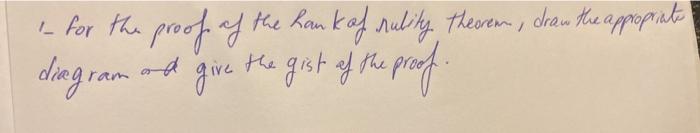 1- for the proof of the Rank of nulity theorem, draw the appropriate
diagram and give the gist of the proof.